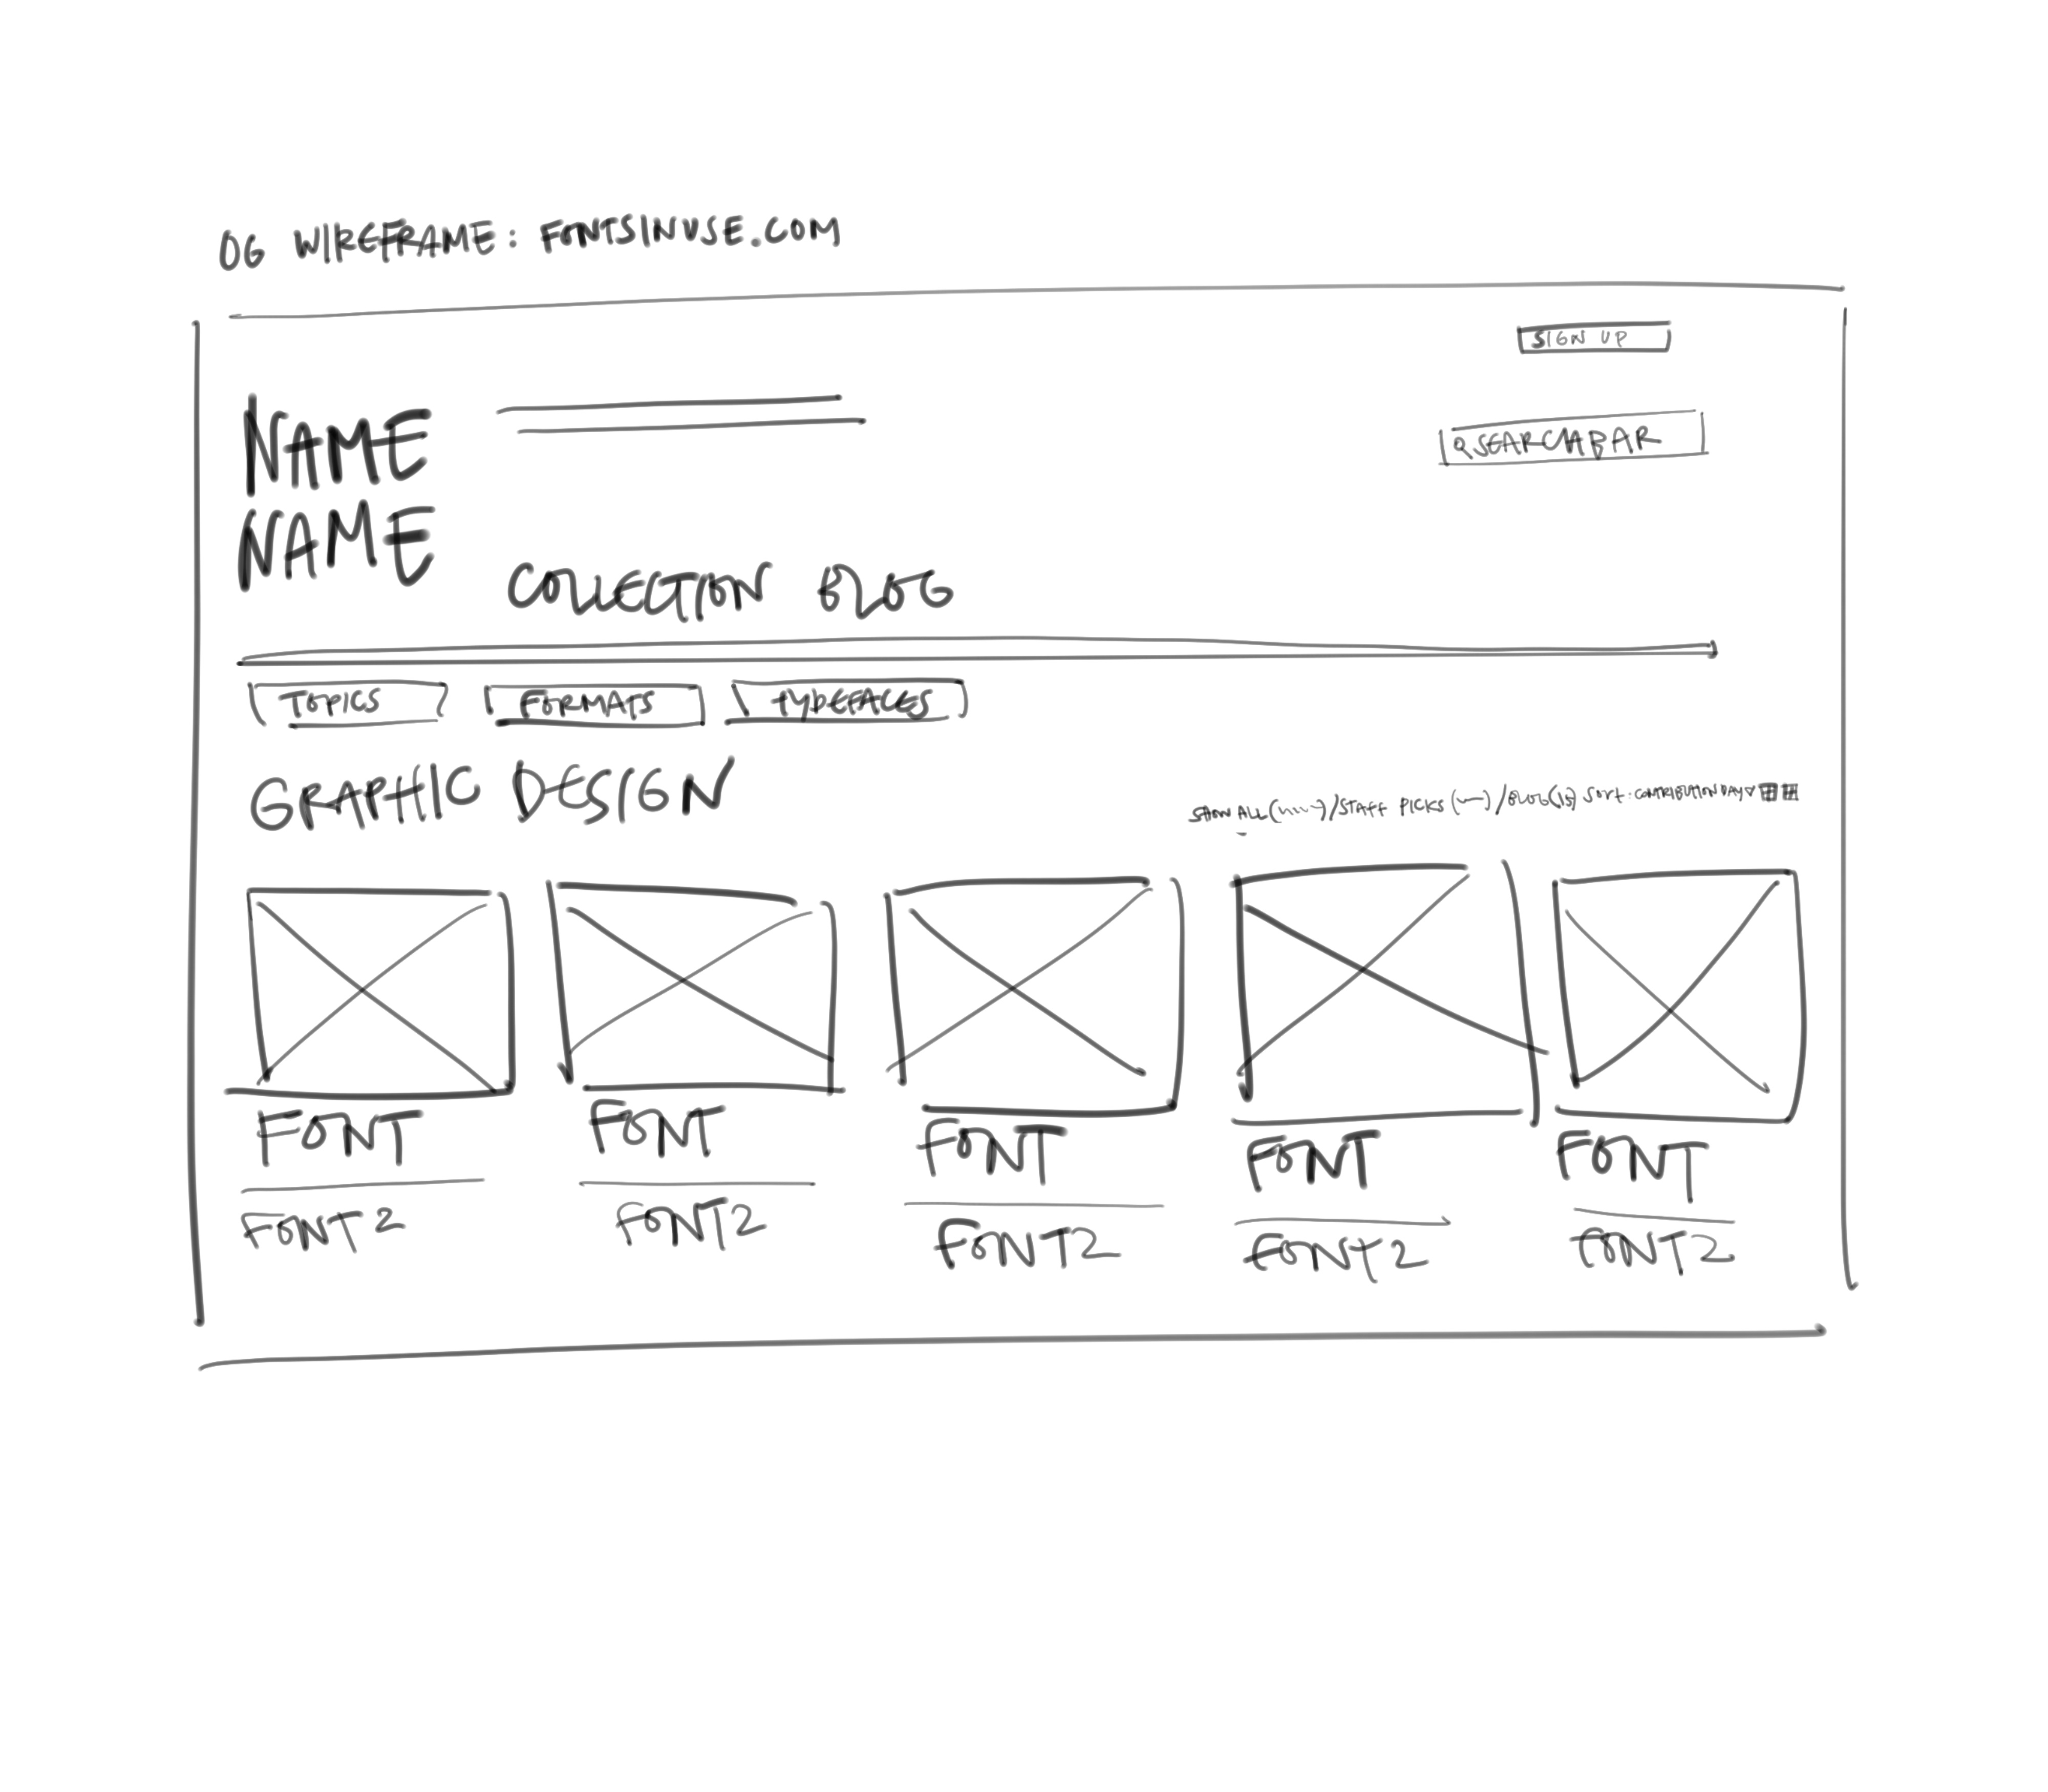 OG WIREFRAME: FONTSINUSE.COM
SIGN UP
NAME
NAME
SEARCHBAR
COLLECTION BLOG
TOPICS FORMATS TYPEFACES
GRAPHIC DESIGN
SHOW ALL ( )/STAFF PICKS ( )/BLOG(15) SORT: CONTRIBUTION DAY
FONT FONT FONT FONT FONT
FONT 2 FONT 2 FONT 2 FONT 2 FONT 2